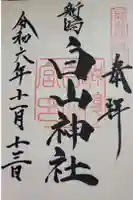 奉拝
新潟
白山神社
令和六年十一月十三日